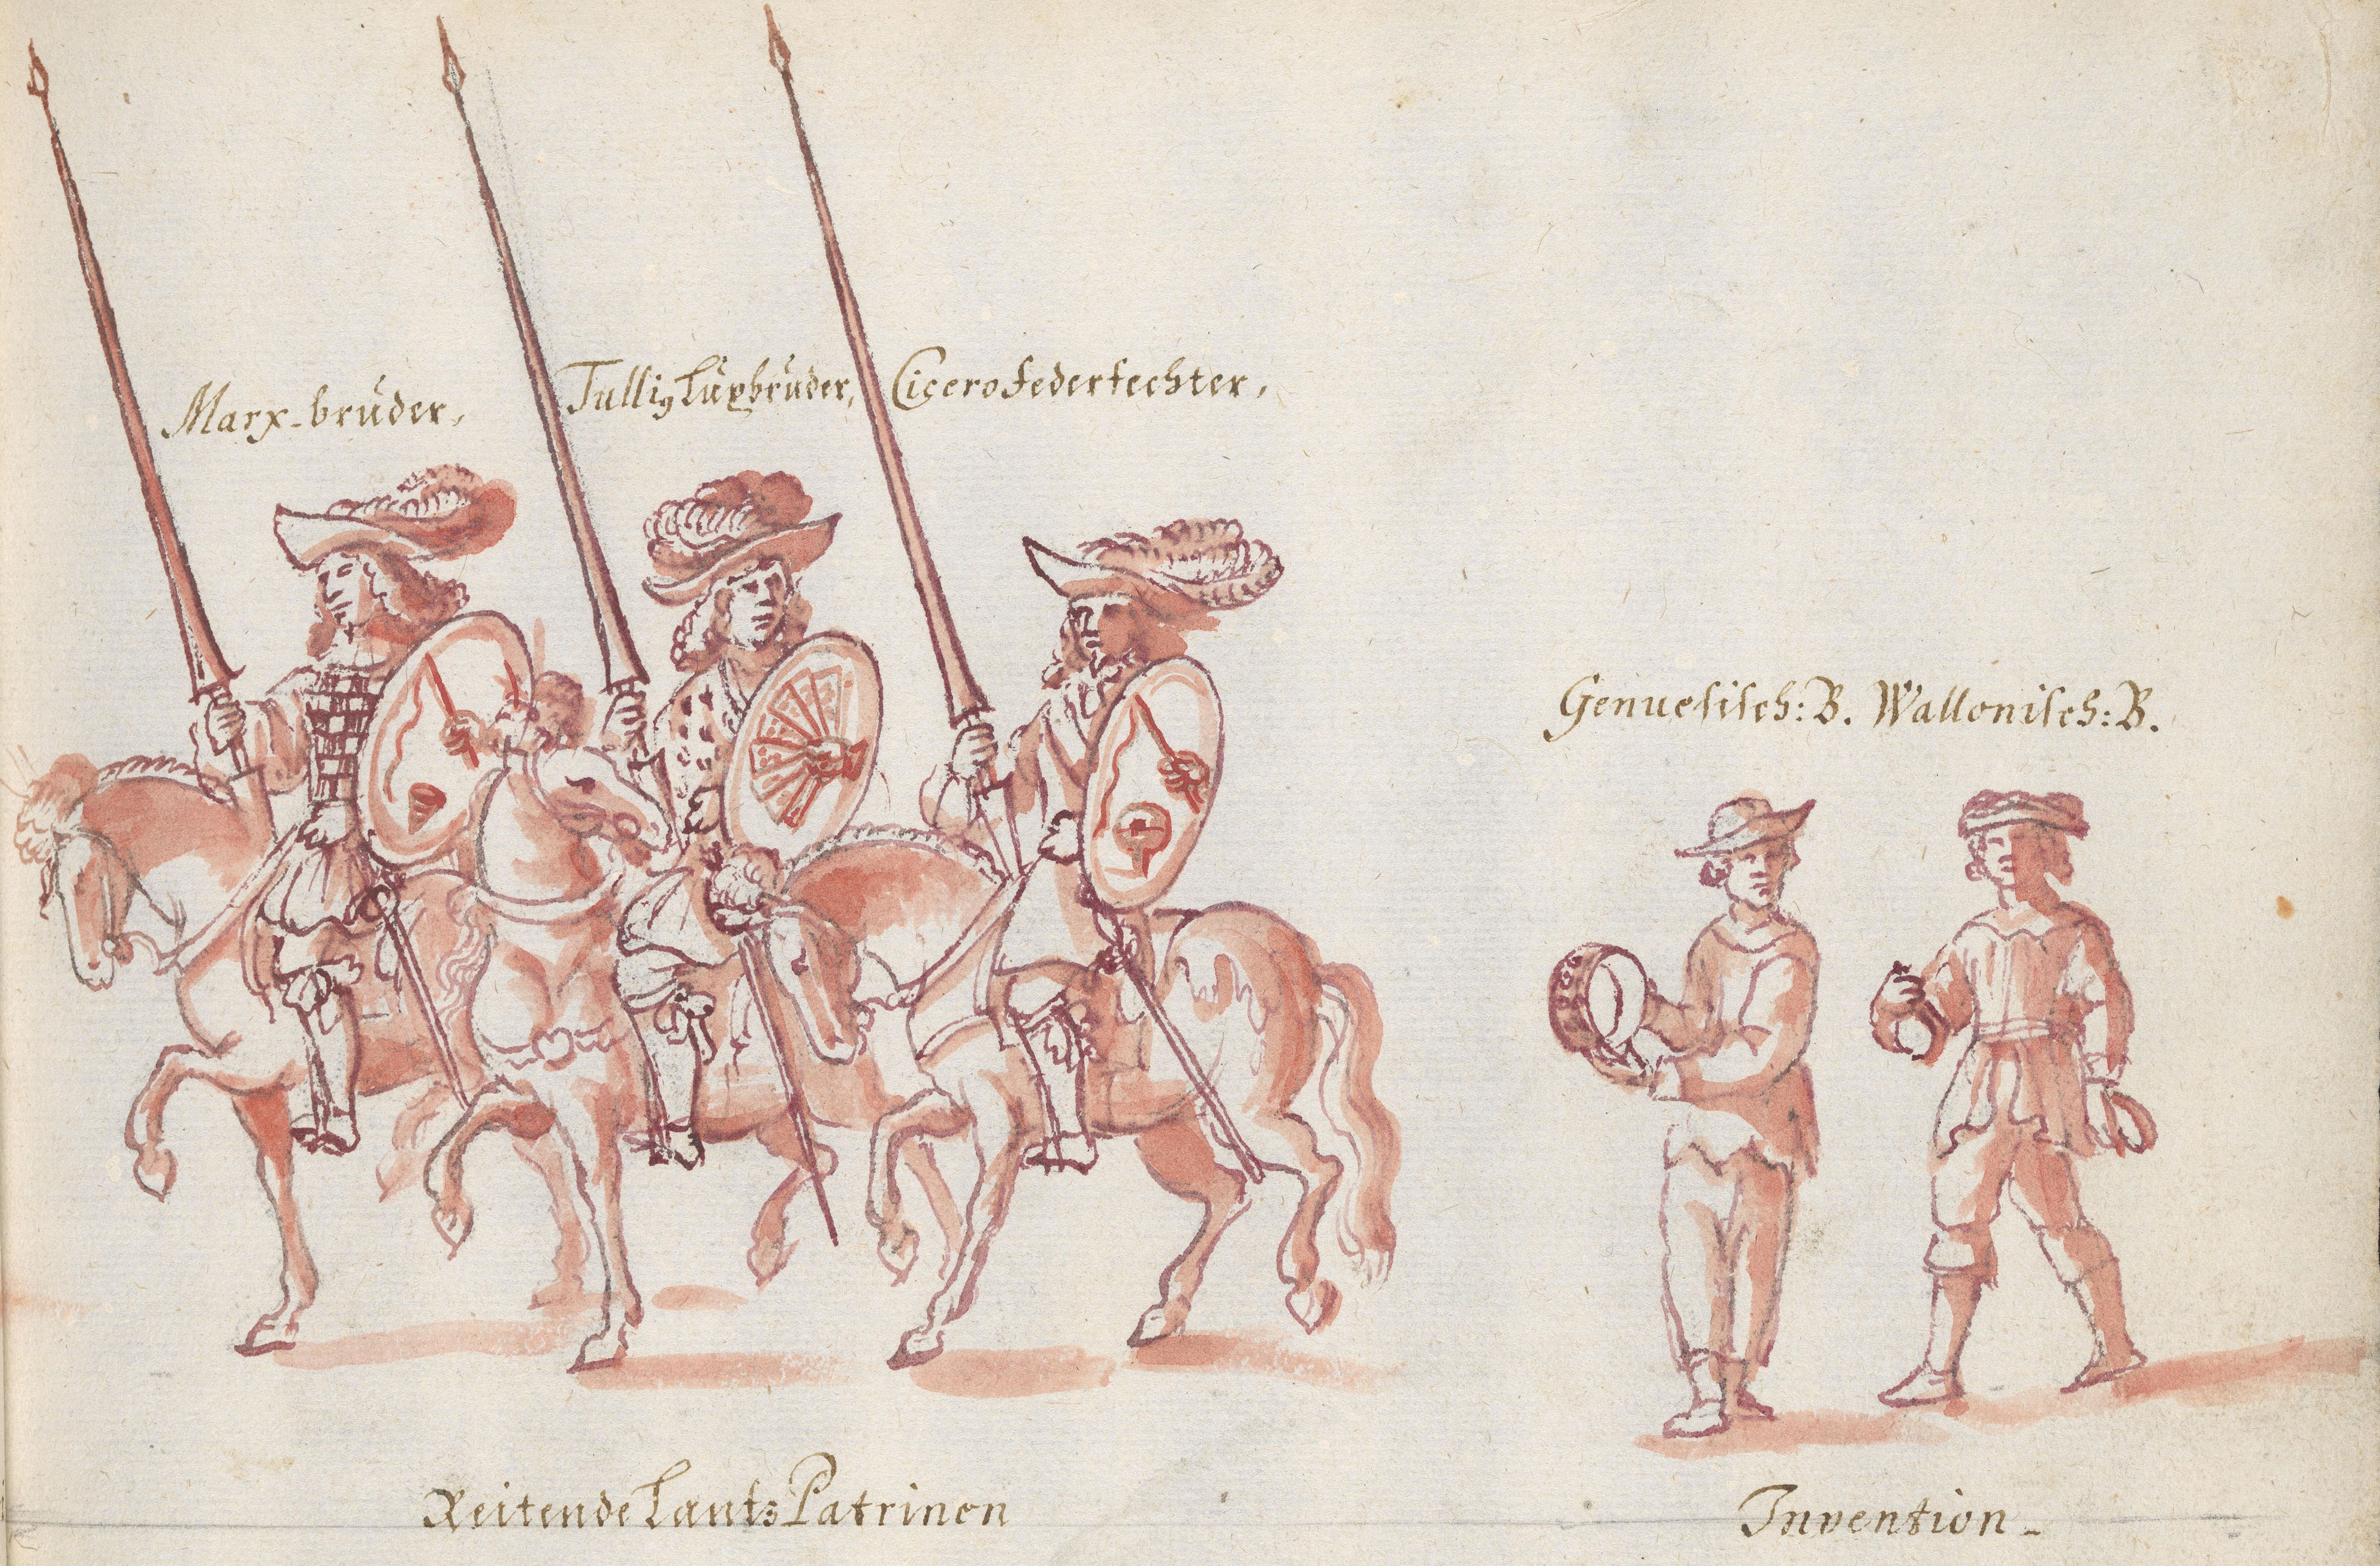 Marx-brüder, Tullig Luxbrüder, Cicero federfechter,
Genuesisch: B. Wallonisch: B.
Reitende Lantz Patrinen
Invention-